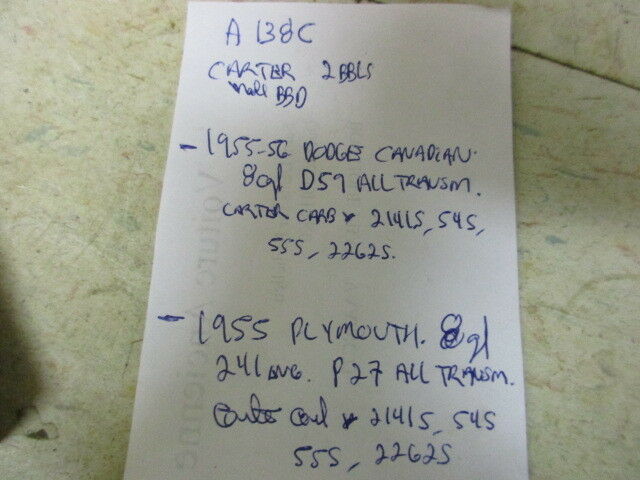 A 138C
CARTER 2 BBLS
Model BBD
- 1955-56 DODGE CANADIAN.
8cyl D59 ALL TRANSM.
CARTER CARB # 2141S, 54S,
55S, 2262S.
- 1955 PLYMOUTH. 8cyl
241 ENG. P27 ALL TRANSM.
Carter Carb # 2141S, 54S
55S, 2262S